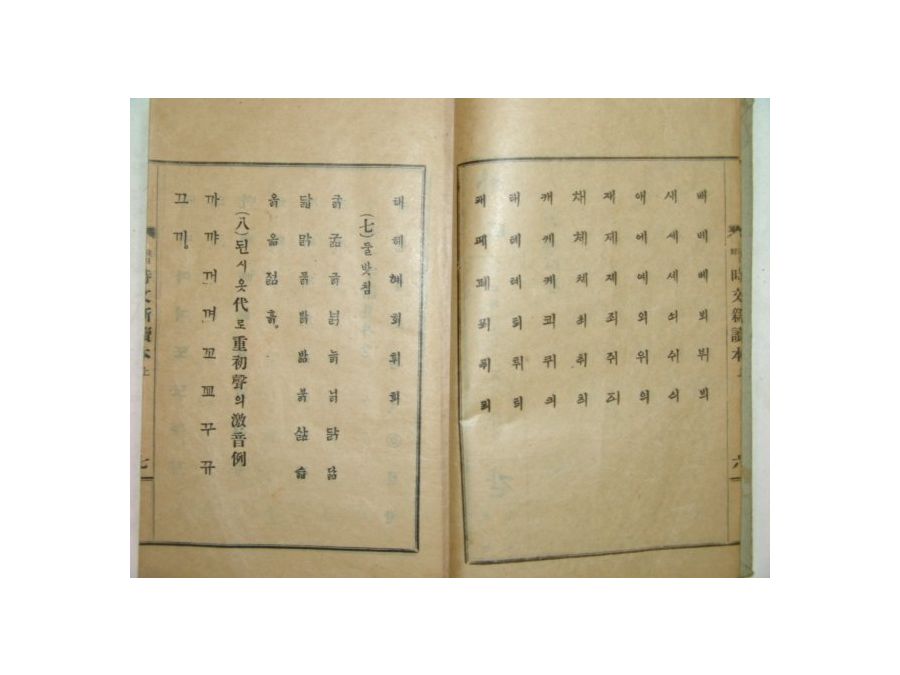 배 베 볘 뵈 뷔 븨
새 세 셰 쇠 쉬 싀
애 에 예 외 위 의
재 제 졔 죄 쥐 즤
채 체 쳬 최 취 츼
캐 케 켸 쾨 퀴 킈
태 테 톄 퇴 튀 틔
패 페 폐 푀 퓌 픠
時文新讀本 上
六
해 헤 혜 회 휘 희
(七)둘밧침
굵 굶 긁 낡 늙 닑 닭 닮
닯 맑 묽 밝 밟 붉 삶 슯
옭 옮 젊 흙
(八)된시옷代로重初聲의激音例
까 꺄 꺼 껴 꼬 꾜 꾸 뀨
끄 끼
時文新讀本 上
七